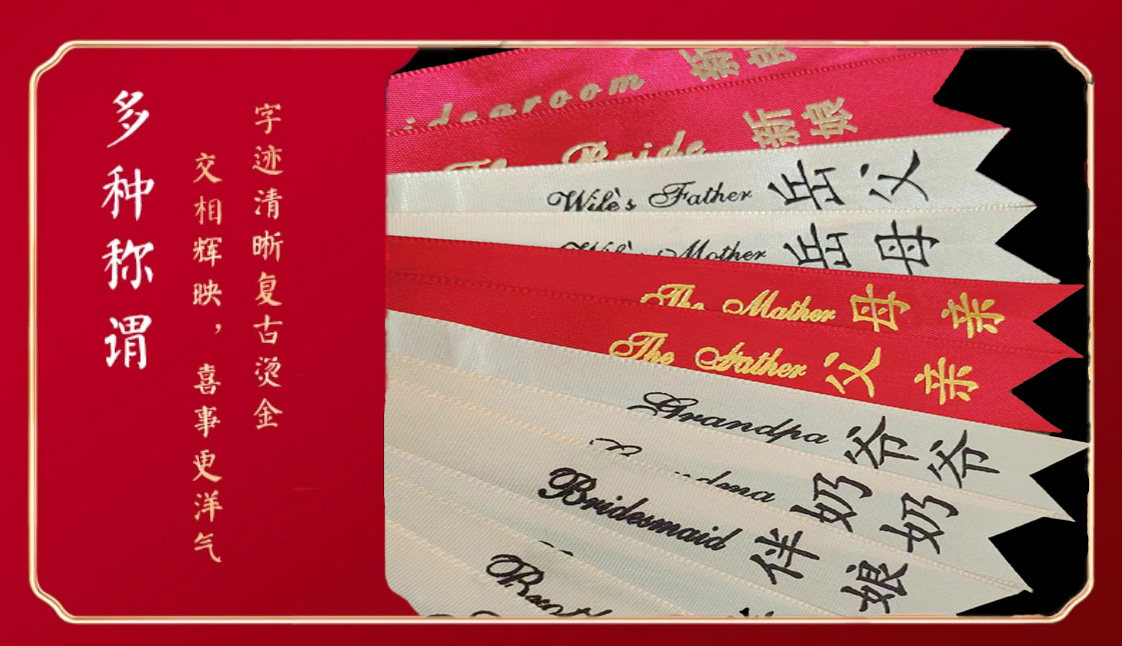 多种称谓
字迹清晰复古烫金
交相辉映，喜事更洋气
新
The Bride 新娘
Wife's Father 岳父
Mother 岳母
The Mather 母亲
The Father 父亲
Grandpa 爷爷
奶奶
Bridesmaid 伴娘